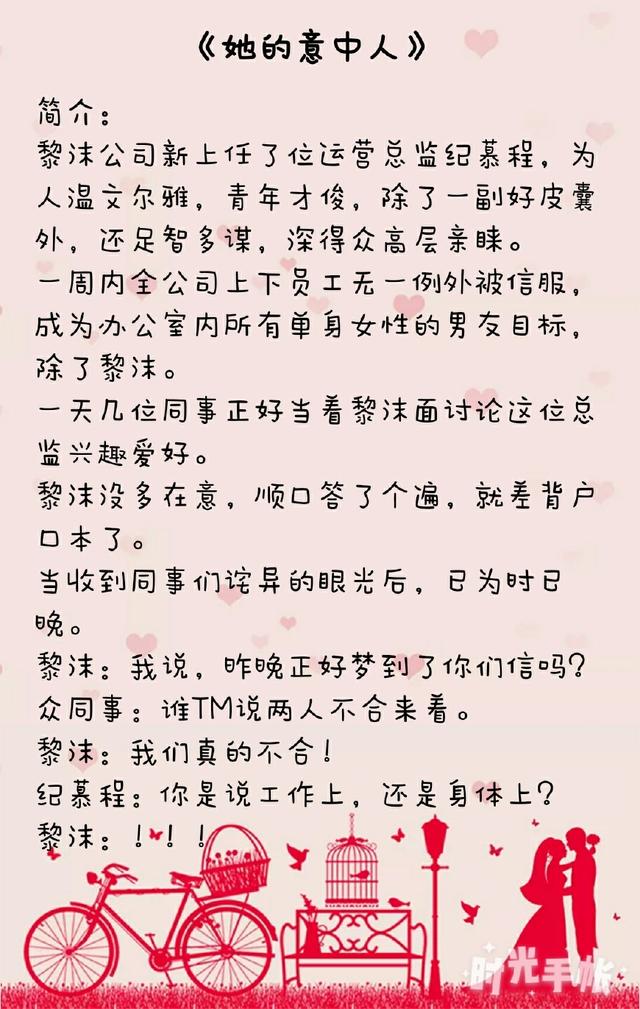 《她的意中人》
简介：
黎沫公司新上任了位运营总监纪慕程，为
人温文尔雅，青年才俊，除了一副好皮囊
外，还足智多谋，深得众高层亲睐。
一周内全公司上下员工无一例外被信服，
成为办公室内所有单身女性的男友目标，
除了黎沫。
一天几位同事正好当着黎沫面讨论这位总
监兴趣爱好。
黎沫没多在意，顺口答了个遍，就差背户
口本了。
当收到同事们诧异的眼光后，已为时已
晚。
黎沫：我说，昨晚正好梦到了你们信吗？
众同事：谁TM说两人不合来着。
黎沫：我们真的不合！
纪慕程：你是说工作上，还是身体上？
黎沫：！！！
时光手帐